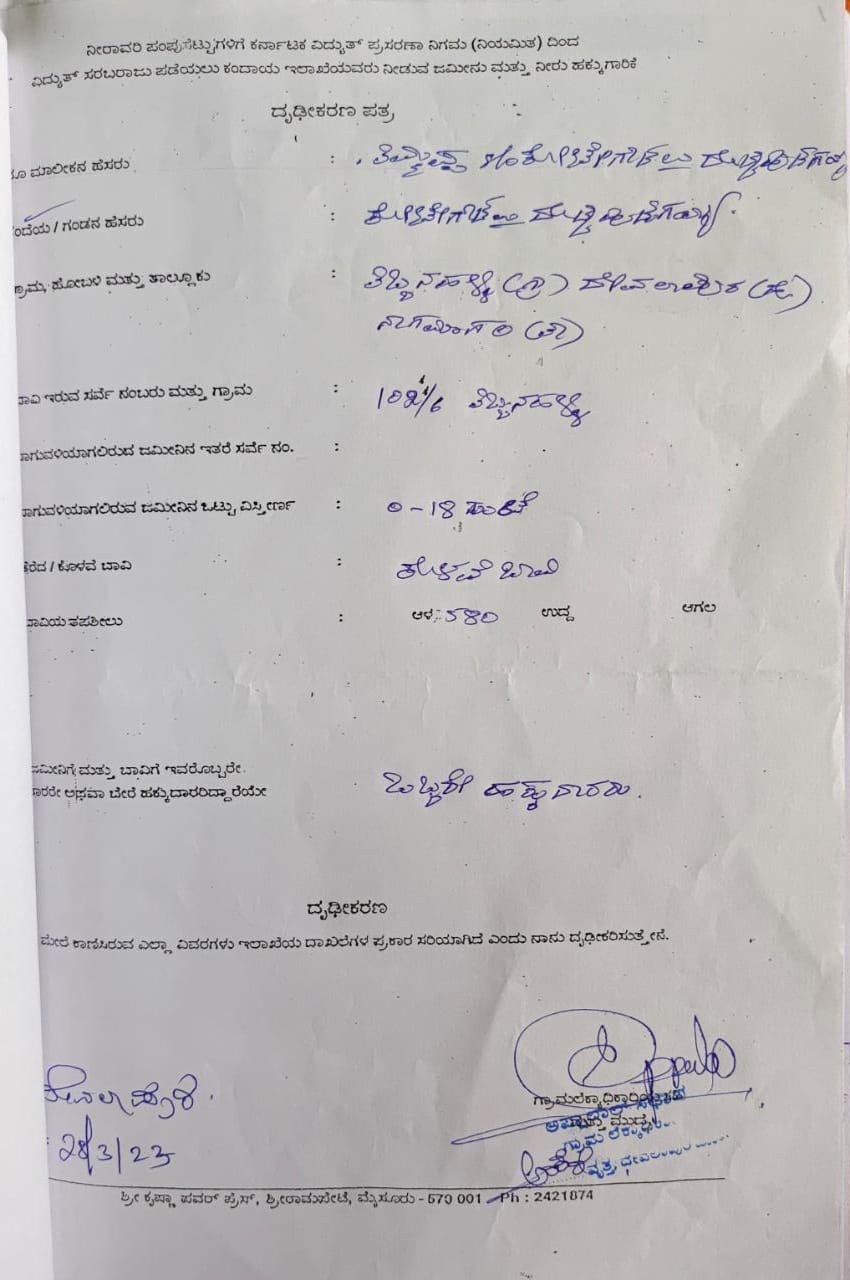 ನೀರಾವರಿ ಪಂಪುಸೆಟ್ಟುಗಳಿಗೆ ಕರ್ನಾಟಕ ವಿದ್ಯುತ್ ಪ್ರಸರಣಾ ನಿಗಮ (ನಿಯಮಿತ) ದಿಂದ
ವಿದ್ಯುತ್ ಸರಬರಾಜು ಪಡೆಯಲು ಕಂದಾಯ ಇಲಾಖೆಯವರು ನೀಡುವ ಜಮೀನು ಮತ್ತು ನೀರು ಹಕ್ಕುಗಾರಿಕೆ
ದೃಢೀಕರಣ ಪತ್ರ
ೂ ಮಾಲೀಕನ ಹೆಸರು :
ಂದೆಯ / ಗಂಡನ ಹೆಸರು :
ಗ್ರಾಮ, ಹೋಬಳಿ ಮತ್ತು ತಾಲ್ಲೂಕು : (ಗ್ರಾ) ದೇವಲಾಪುರ (ಹೋ)
ನಾಗಮಂಗಲ (ತಾ)
ಾವಿ ಇರುವ ಸರ್ವೆ ನಂಬರು ಮತ್ತು ಗ್ರಾಮ : 102/6
ಾಗುವಳಿಯಾಗಲಿರುವ ಜಮೀನಿನ ಇತರೆ ಸರ್ವೆ ನಂ. :
ಾಗುವಳಿಯಾಗಲಿರುವ ಜಮೀನಿನ ಒಟ್ಟು ವಿಸ್ತೀರ್ಣ : 0-18 ಗುಂಟೆ
ತೆರೆದ / ಕೊಳವೆ ಬಾವಿ : ಕೊಳವೆ ಬಾವಿ
ಬಾವಿಯ ತಪಶೀಲು : ಆಳ: 580 ಉದ್ದ ಆಗಲ
ಜಮೀನಿಗೆ ಮತ್ತು ಬಾವಿಗೆ ಇವರೊಬ್ಬರೇ
ಾರರೇ ಅಥವಾ ಬೇರೆ ಹಕ್ಕುದಾರರಿದ್ದಾರೆಯೇ ಒಬ್ಬರೇ ಹಕ್ಕುದಾರರು.
ದೃಢೀಕರಣ
ಮೇಲೆ ಕಾಣಿಸಿರುವ ಎಲ್ಲಾ ವಿವರಗಳು ಇಲಾಖೆಯ ದಾಖಲೆಗಳ ಪ್ರಕಾರ ಸರಿಯಾಗಿದೆ ಎಂದು ನಾನು ದೃಢೀಕರಿಸುತ್ತೇನೆ.
ದೇವಲಾಪುರ.
: 28/3/23
ಗ್ರಾಮ ಲೆಕ್ಕಾಧಿಕಾರಿ
ವೃತ್ತ
ಶ್ರೀ ಕೃಷ್ಣಾ ಪವರ್ ಪ್ರೆಸ್, ಶ್ರೀರಾಮಪೇಟೆ, ಮೈಸೂರು - 570 001 Ph : 2421874